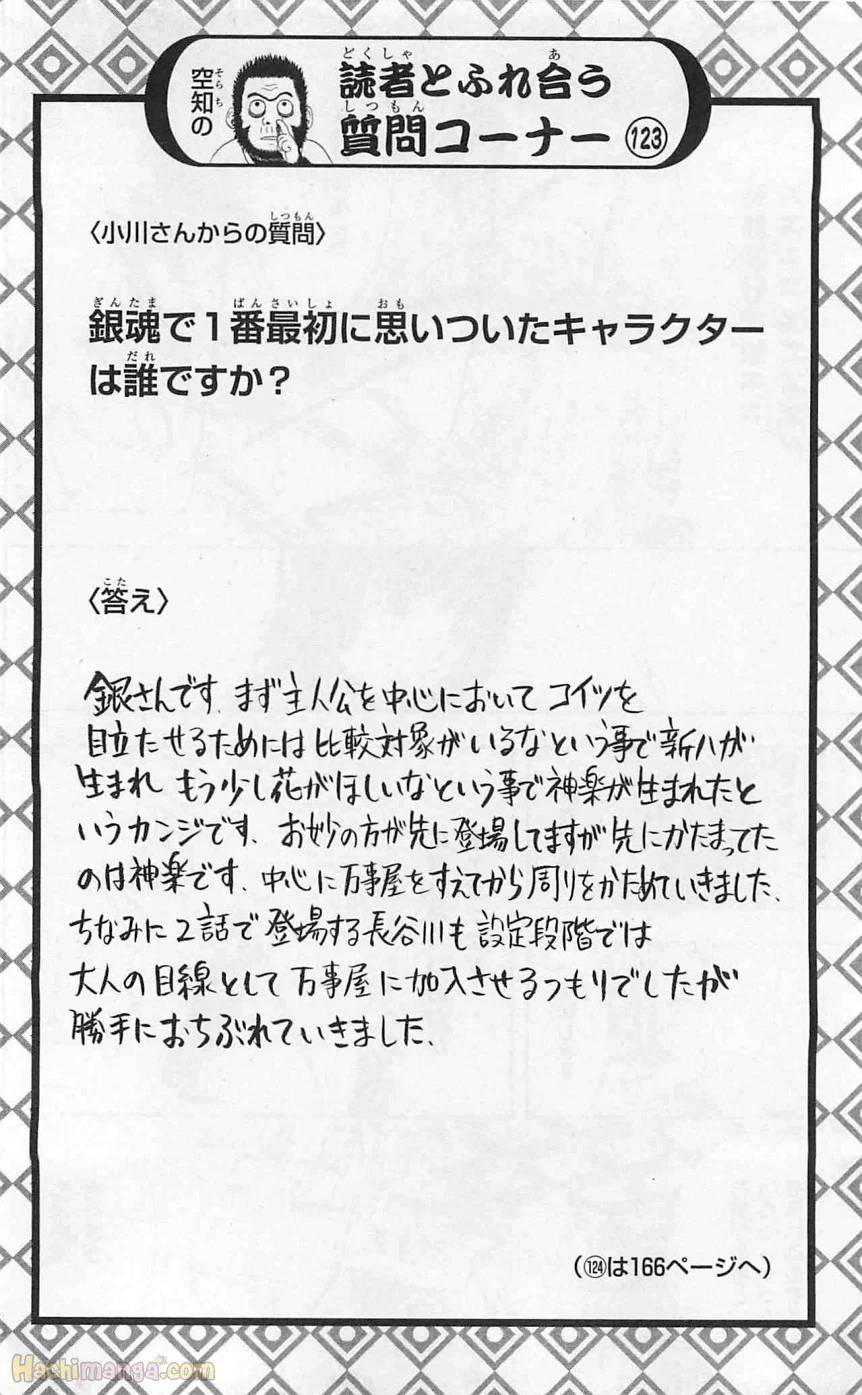 空知の
読者とふれ合う
質問コーナー 123
〈小川さんからの質問〉
銀魂で1番最初に思いついたキャラクター
は誰ですか？
〈答え〉
銀さんです、まず主人公を中心において コイツを
目立たせるためには比較対象がいるなという事で新八が
生まれ もう少し花がほしいなという事で神楽が生まれたと
いうカンジです、お妙の方が先に登場してますが先にかたまってた
のは神楽です、中心に万事屋をすえてから周りをかためていきました、
ちなみに2話で登場する長谷川も設定段階では
大人の目線として万事屋に加入させるつもりでしたが
勝手におちぶれていきました、
（124は166ページへ）
Hachimanga.com